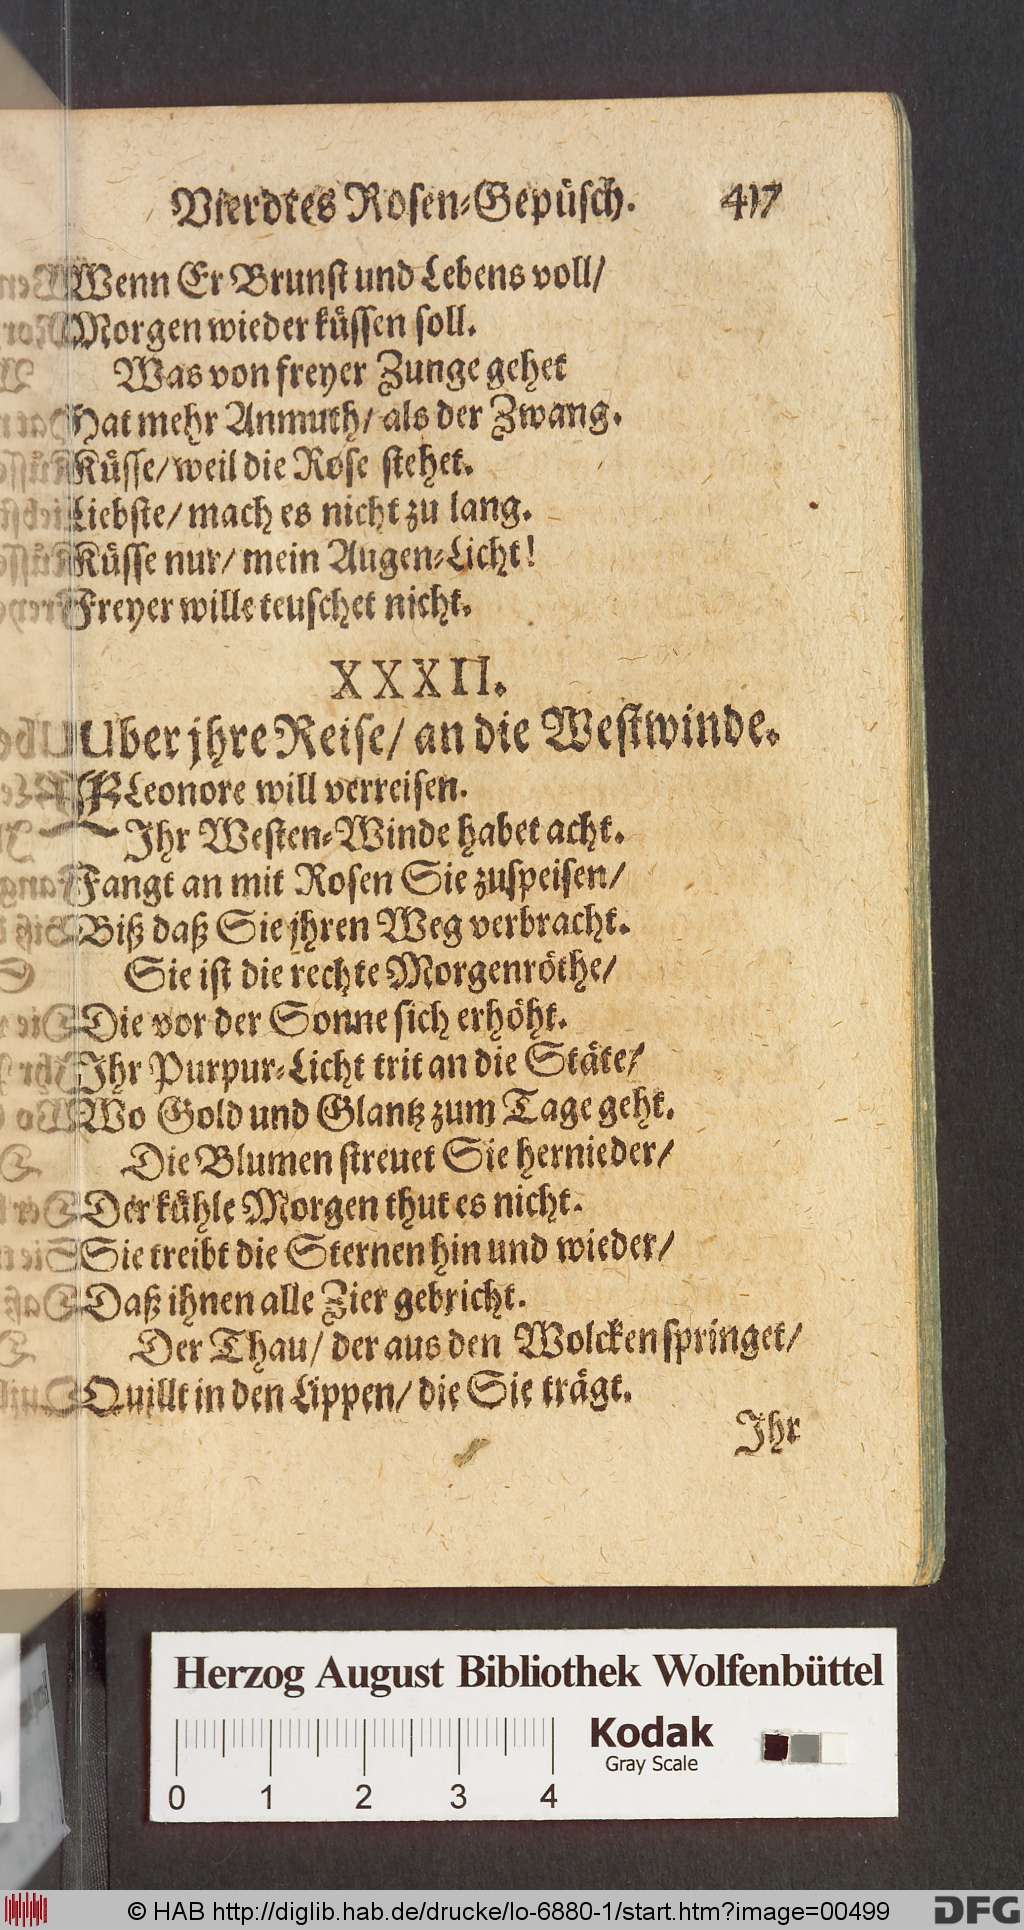 Vierdtes Rosen-Gepüsch. 417
Wenn Er Brunst und Lebens voll/
Morgen wieder küssen soll.
Was von freyer Zunge gehet
Hat mehr Anmuth/ als der Zwang.
Küsse/ weil die Rose stehet.
Liebste/ mach es nicht zu lang.
Küsse nur/ mein Augen-Licht!
Freyer wille teuschet nicht.
XXXII.
Uber jhre Reise/ an die Westwinde.
Leonore will verreisen.
Ihr Westen-Winde habet acht.
Fangt an mit Rosen Sie zuspeisen/
Biß daß Sie jhren Weg verbracht.
Sie ist die rechte Morgenröthe/
Die vor der Sonne sich erhöht.
Ihr Purpur-Licht trit an die Stäte/
Wo Gold und Glantz zum Tage geht.
Die Blumen streuet Sie hernieder/
Der kühle Morgen thut es nicht.
Sie treibt die Sternen hin und wieder/
Daß ihnen alle Zier gebricht.
Der Thau/ der aus den Wolcken springet/
Quillt in den Lippen/ die Sie trägt.
Ihr
Herzog August Bibliothek Wolfenbüttel
Kodak
Gray Scale
0 1 2 3 4
© HAB http://diglib.hab.de/drucke/lo-6880-1/start.htm?image=00499
DFG